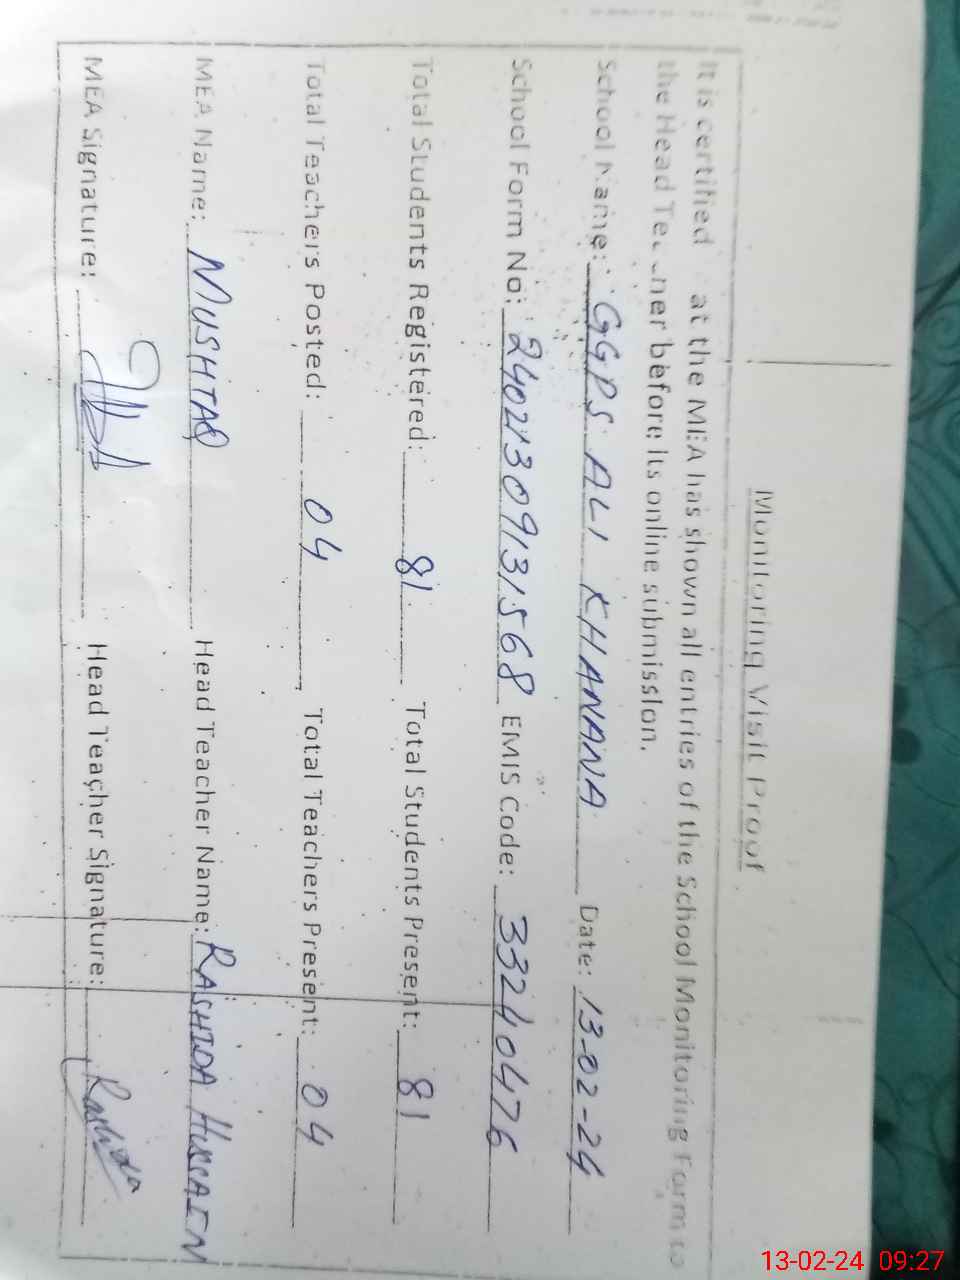 Monitoring Visit Proof
It is certified at the MEA has shown all entries of the School Monitoring Form to
the Head before its online submission.
School Name: GGPS ALI KHANANA Date: 13-02-24
School Form No: 24021309131568 EMIS Code: 33240476
Total Students Registered: 81 Total Students Present: 81
Total Teachers Posted: 04 Total Teachers Present: 04
MEA Name: MUSHTAQ Head Teacher Name: RASHIDA HUSSAIN
MEA Signature: Head Teacher Signature: Rashida
13-02-24 09:27